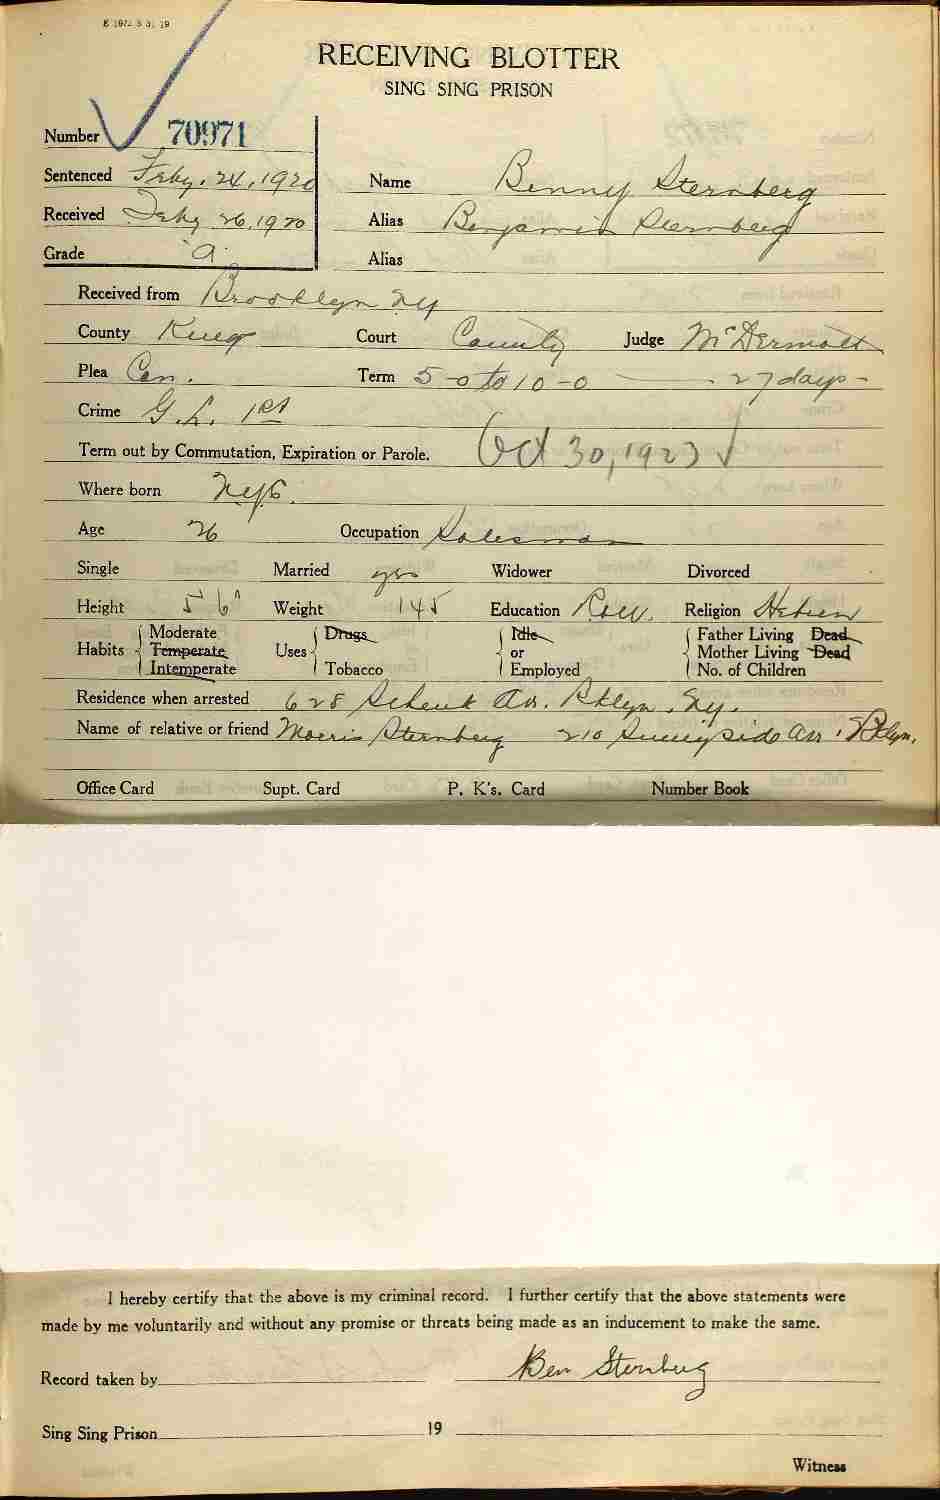 RECEIVING BLOTTER
SING SING PRISON
Number 70971
Sentenced Feby. 24, 1920 Name Benny Sternberg
Received Feby 26, 1920 Alias Benjamin Sternberg
Grade "A" Alias
Received from Brooklyn NY
County Kings Court County Judge McDermott
Plea Con. Term 5-0 to 10-0 27 days-
Crime G.L. 1st
Term out by Commutation, Expiration or Parole. Oct 30, 1923
Where born NYC.
Age 26 Occupation Salesman
Single Married yes Widower Divorced
Height 5' 6" Weight 145 Education Religion Hebrew
Habits Moderate Temperate Intemperate Uses Drugs Tobacco Idle or Employed Father Living Dead Mother Living Dead No. of Children
Residence when arrested 628 Schenk Av. Bklyn. Ny.
Name of relative or friend Morris Sternberg 210 Sunnyside Av. Bklyn.
Office Card Supt. Card P. K's. Card Number Book
I hereby certify that the above is my criminal record. I further certify that the above statements were
made by me voluntarily and without any promise or threats being made as an inducement to make the same.
Record taken by Ben Sternberg
Sing Sing Prison 19
Witness